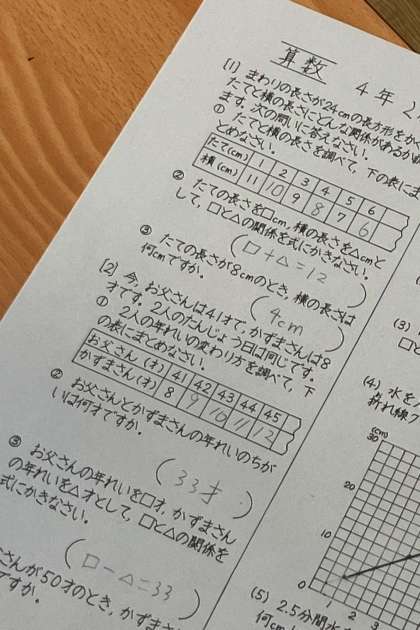 算数
4年
[1] まわりの長さが24cmの長方形をかく
たてと横の長さにどんな関係があるか
ます。次の問いに答えなさい。
① たてと横の長さを調べて、下の表に
とめなさい。
たて(cm) 1 2 3 4 5 6
横(cm) 11 10 9 8 7 6
② たての長さを□cm、横の長さを△cmと
して、□と△の関係を式にかきなさい。
(□+△=12)
③ たての長さが8cmのとき、横の長さは
何cmですか。
(4cm)
[2] 今、お父さんは41才で、かずまさんは8
才です。2人のたんじょう日は同じです。
① 2人の年れいの変わり方を調べて、下
の表にまとめなさい。
お父さん(才) 41 42 43 44 45
かずまさん(才) 8 9 10 11 12
② お父さんとかずまさんの年れいのちが
いは何才ですか。
(33才)
③ お父さんの年れいを□才、かずまさん
の年れいを△才として、□と△の関係を
式にかきなさい。
(□-△=33)
さんが50才のとき、かずまさ
ですか。
(3)
□と
(4) 水を
折れ線グ
(cm)
30
20
10
0 1 2 3 4
(5) 2.5分間水
何cm